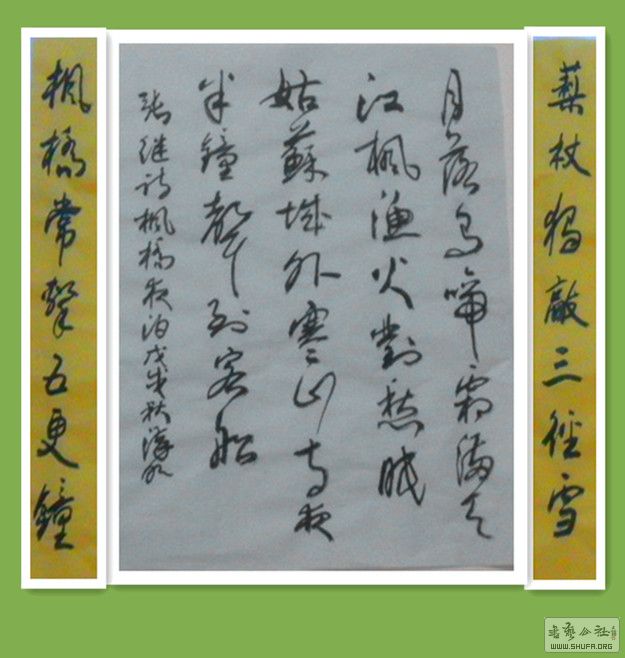 藜杖獨敲三徑雪
月落烏啼霜滿天
江楓漁火對愁眠
姑蘇城外寒山寺夜
半鐘聲到客船
張继詩楓橋夜泊戊戌秋
楓橋常擊五更鐘
书艺公社
WWW.SHUFA.ORG